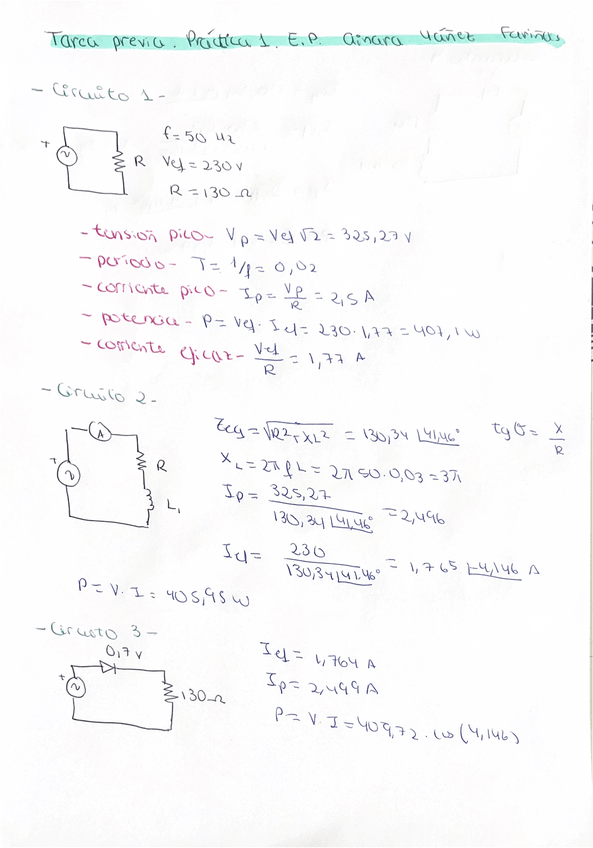 Tarea previa. Práctica 1. E.P. Ainara Yáñez Fariñas
- Circuito 1 -
+
R
f = 50 Hz
Vef = 230 V
R = 130 Ω
- tensión pico - Vp = Vef √2 = 325,27 V
- período - T = 1/f = 0,02
- corriente pico - Ip = Vp/R = 2,5 A
- potencia - P = Vef · Ief = 230 · 1,77 = 407,1 W
- corriente eficaz - Vef/R = 1,77 A
- Circuito 2 -
A
+
R
L1
Zeq = √R² + XL² = 130,34 |41,46° tgθ = X/R
XL = 2π f L = 2π 50 · 0,03 = 3π
Ip = 325,27 / 130,34 |41,46° = 2,496
Ief = 230 / 130,34 |41,46° = 1,765 |-4,146 A
P = V · I = 405,95 W
- Circuito 3 -
0,7 V
+
130 Ω
Ief = 1,764 A
Ip = 2,499 A
P = V · I = 409,72 · cos (4,146)